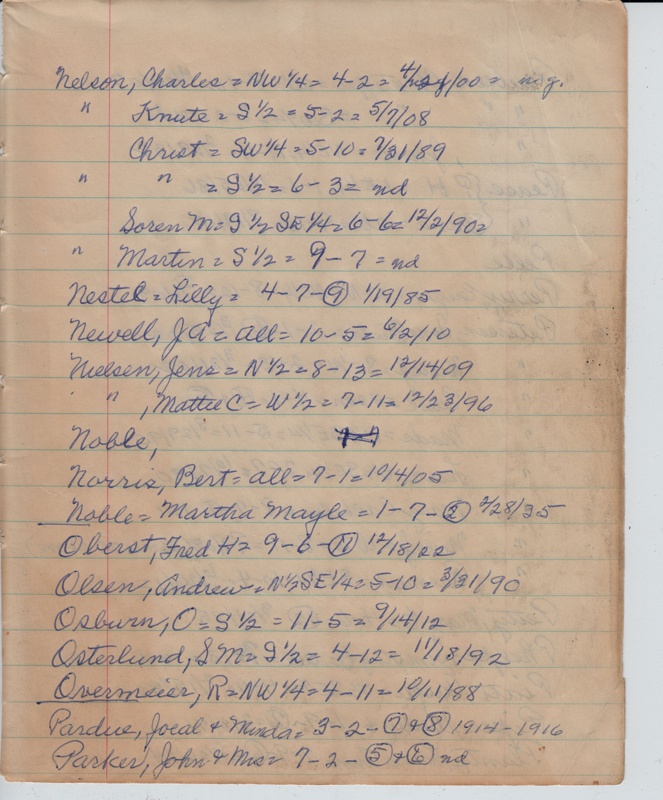 Nelson, Charles = NW 1/4 = 4-2 = /00 = n.g.
" Knute = S 1/2 = 5-2 = 5/7/08
Christ = SW 1/4 = 5-10 = 7/31/89
" " = S 1/2 = 6-3 = nd
Soren M = S 1/2 SE 1/4 = 6-6 = 12/2/90 =
" Martin = S 1/2 = 9-7 = nd
Nestel = Lilly = 4-7-9 1/19/85
Newell, J A = all = 10-5 = 6/2/10
Nielsen, Jens = N 1/2 = 8-13 = 12/14/09
" , Mattie C = W 1/2 = 7-11 = 12/23/96
Noble,
Norris, Bert = all = 7-1 = 10/4/05
Noble = Martha Mayle = 1-7-2 2/28/35
Oberst, Fred H = 9-6-11 12/18/22
Olsen, Andrew = N 1/2 SE 1/4 = 5-10 = 3/31/90
Osburn, O = S 1/2 = 11-5 = 9/14/12
Osterlund, S M = S 1/2 = 4-12 = 11/18/92
Overmeier, R = NW 1/4 = 4-11 = 10/11/88
Pardue, Jocal & Minda = 3-2-7 & 8 1914-1916
Parker, John & Mrs = 7-2-5 & 6 nd